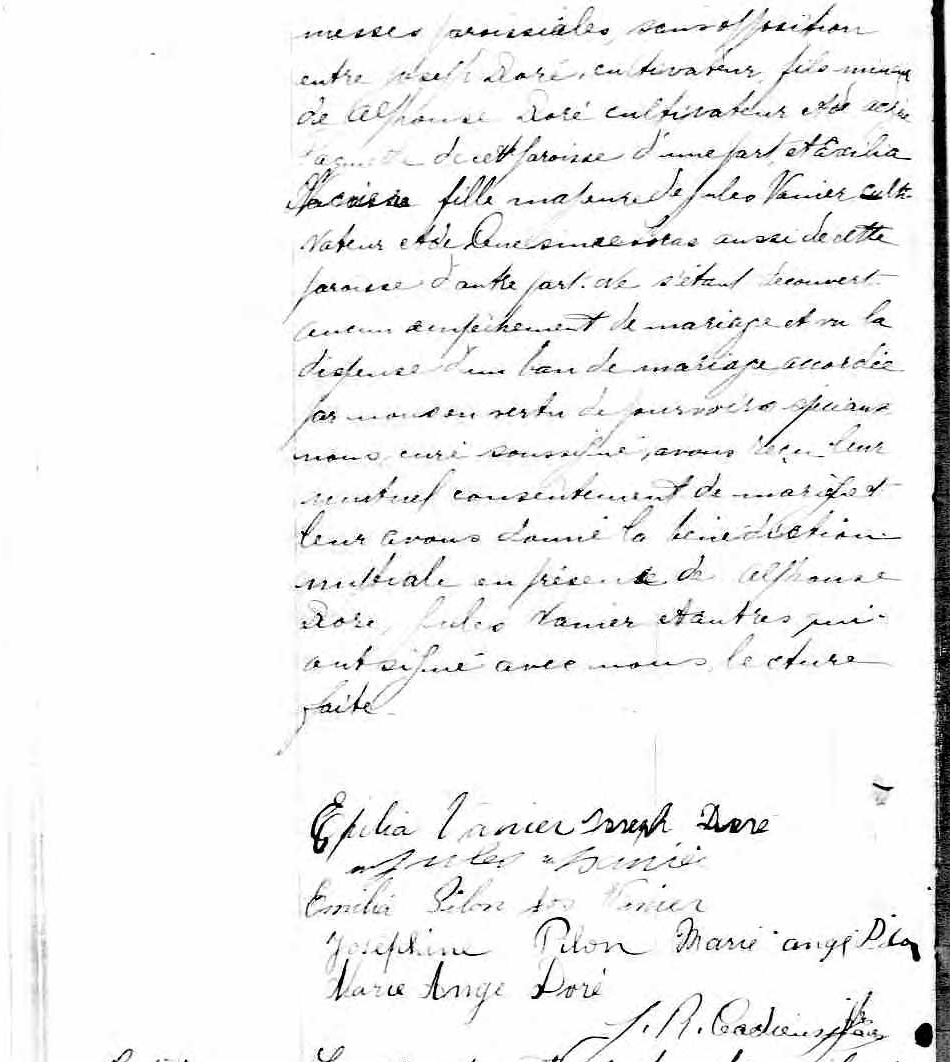 messes paroissiales, sans opposition
entre Joseph Doré, cultivateur, fils mineur
de Alphonse Doré cultivateur et de
de cette paroisse d'une part, et Exilia
fille majeure de Jules Vanier culti
vateur et de aussi de cette
paroisse d'autre part. Ne s'étant découvert
aucun empêchement de mariage et vu la
dispense d'un ban de mariage accordée
par nous en vertu de pourvoirs spéciaux
nous, curé soussigné, avons reçu leur
mutuel consentement de mariage et
leur avons donné la bénédiction
nuptiale en présence de Alphonse
Doré, Jules Vanier et autres qui
ont signé avec nous, lecture
faite.
Vanier Joseph Doré
Jules
Emilia Pilon Vanier
Josephine Pilon Marie ange Pilon
Marie Ange Doré
J. R.